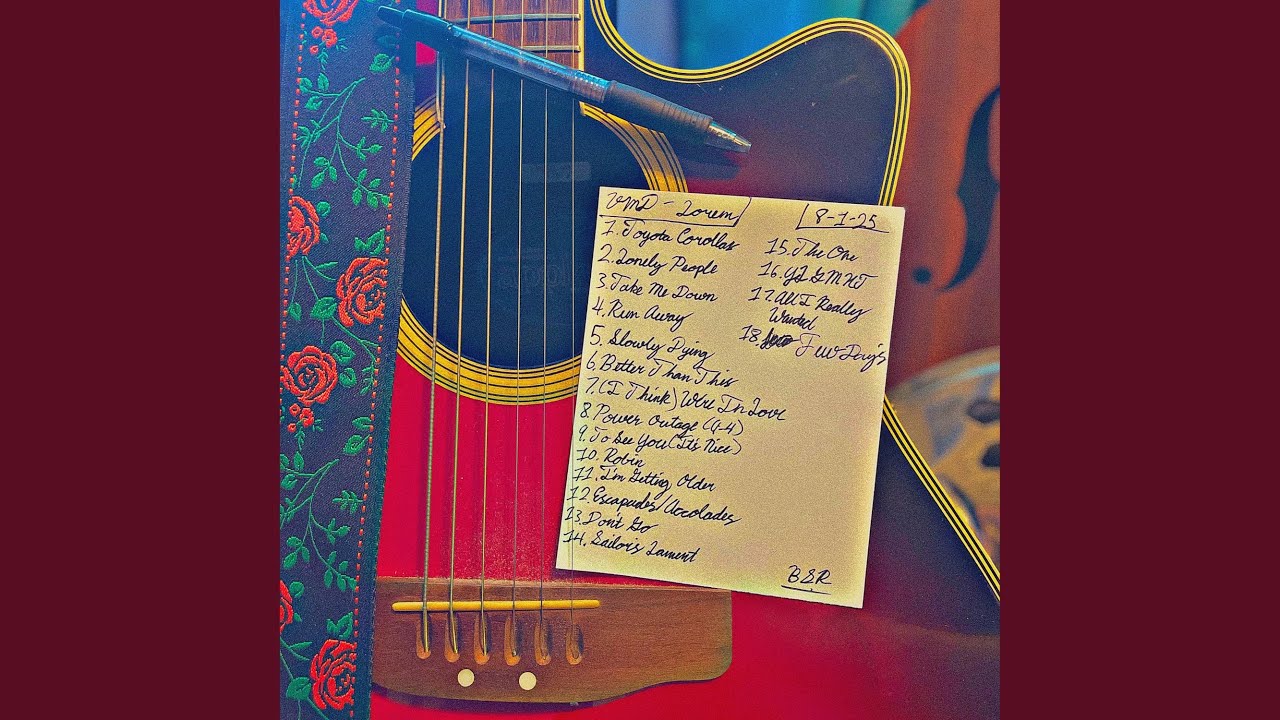 VMD - Lorem
8-1-25
1. Toyota Corollas
2. Lonely People
3. Take Me Down
4. Run Away
5. Slowly Dying
6. Better Than This
7. (I Think) We're In Love
8. Power Outage (4-4)
9. To See You (It's Nice)
10. Robin
11. I'm Getting Older
12. Escapades/Accolades
13. Don't Go
14. Sailor's Lament
15. The One
16. YLGMHT
17. All I Really
Wanted
18. Few Days
BSR